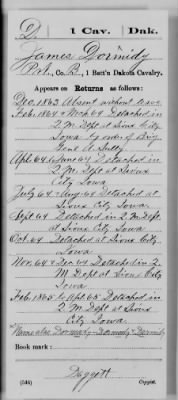 D. | 1 Cav. | Dak.
James Dormidy
Pvt., Co. B, 1 Batt'n Dakota Cavalry.
Appears on Returns as follows:
Dec. 1863 Absent without leave
Feb. 1864 & Mch 64 Detached in
Q. M. Dept at Sioux City
Iowa by order of Brig
Genl A. Sully
Apl. 64 to June 64 Detached in
Q. M. Dept at Sioux
City Iowa
July 64 & Aug 64 Detached at
Sioux City Iowa
Sept 64 Detached in Q. M. Dept
at Sioux City Iowa
Oct. 64 Detached at Sioux City
Iowa
Nov. 64 & Dec 64 Detached in Q.
M. Dept at Sioux City
Iowa
Feb. 1865 to Apl 65 Detached in
Q. M. Dept at Sioux
City Iowa
Name also
Book mark:
(546)
Copyist.